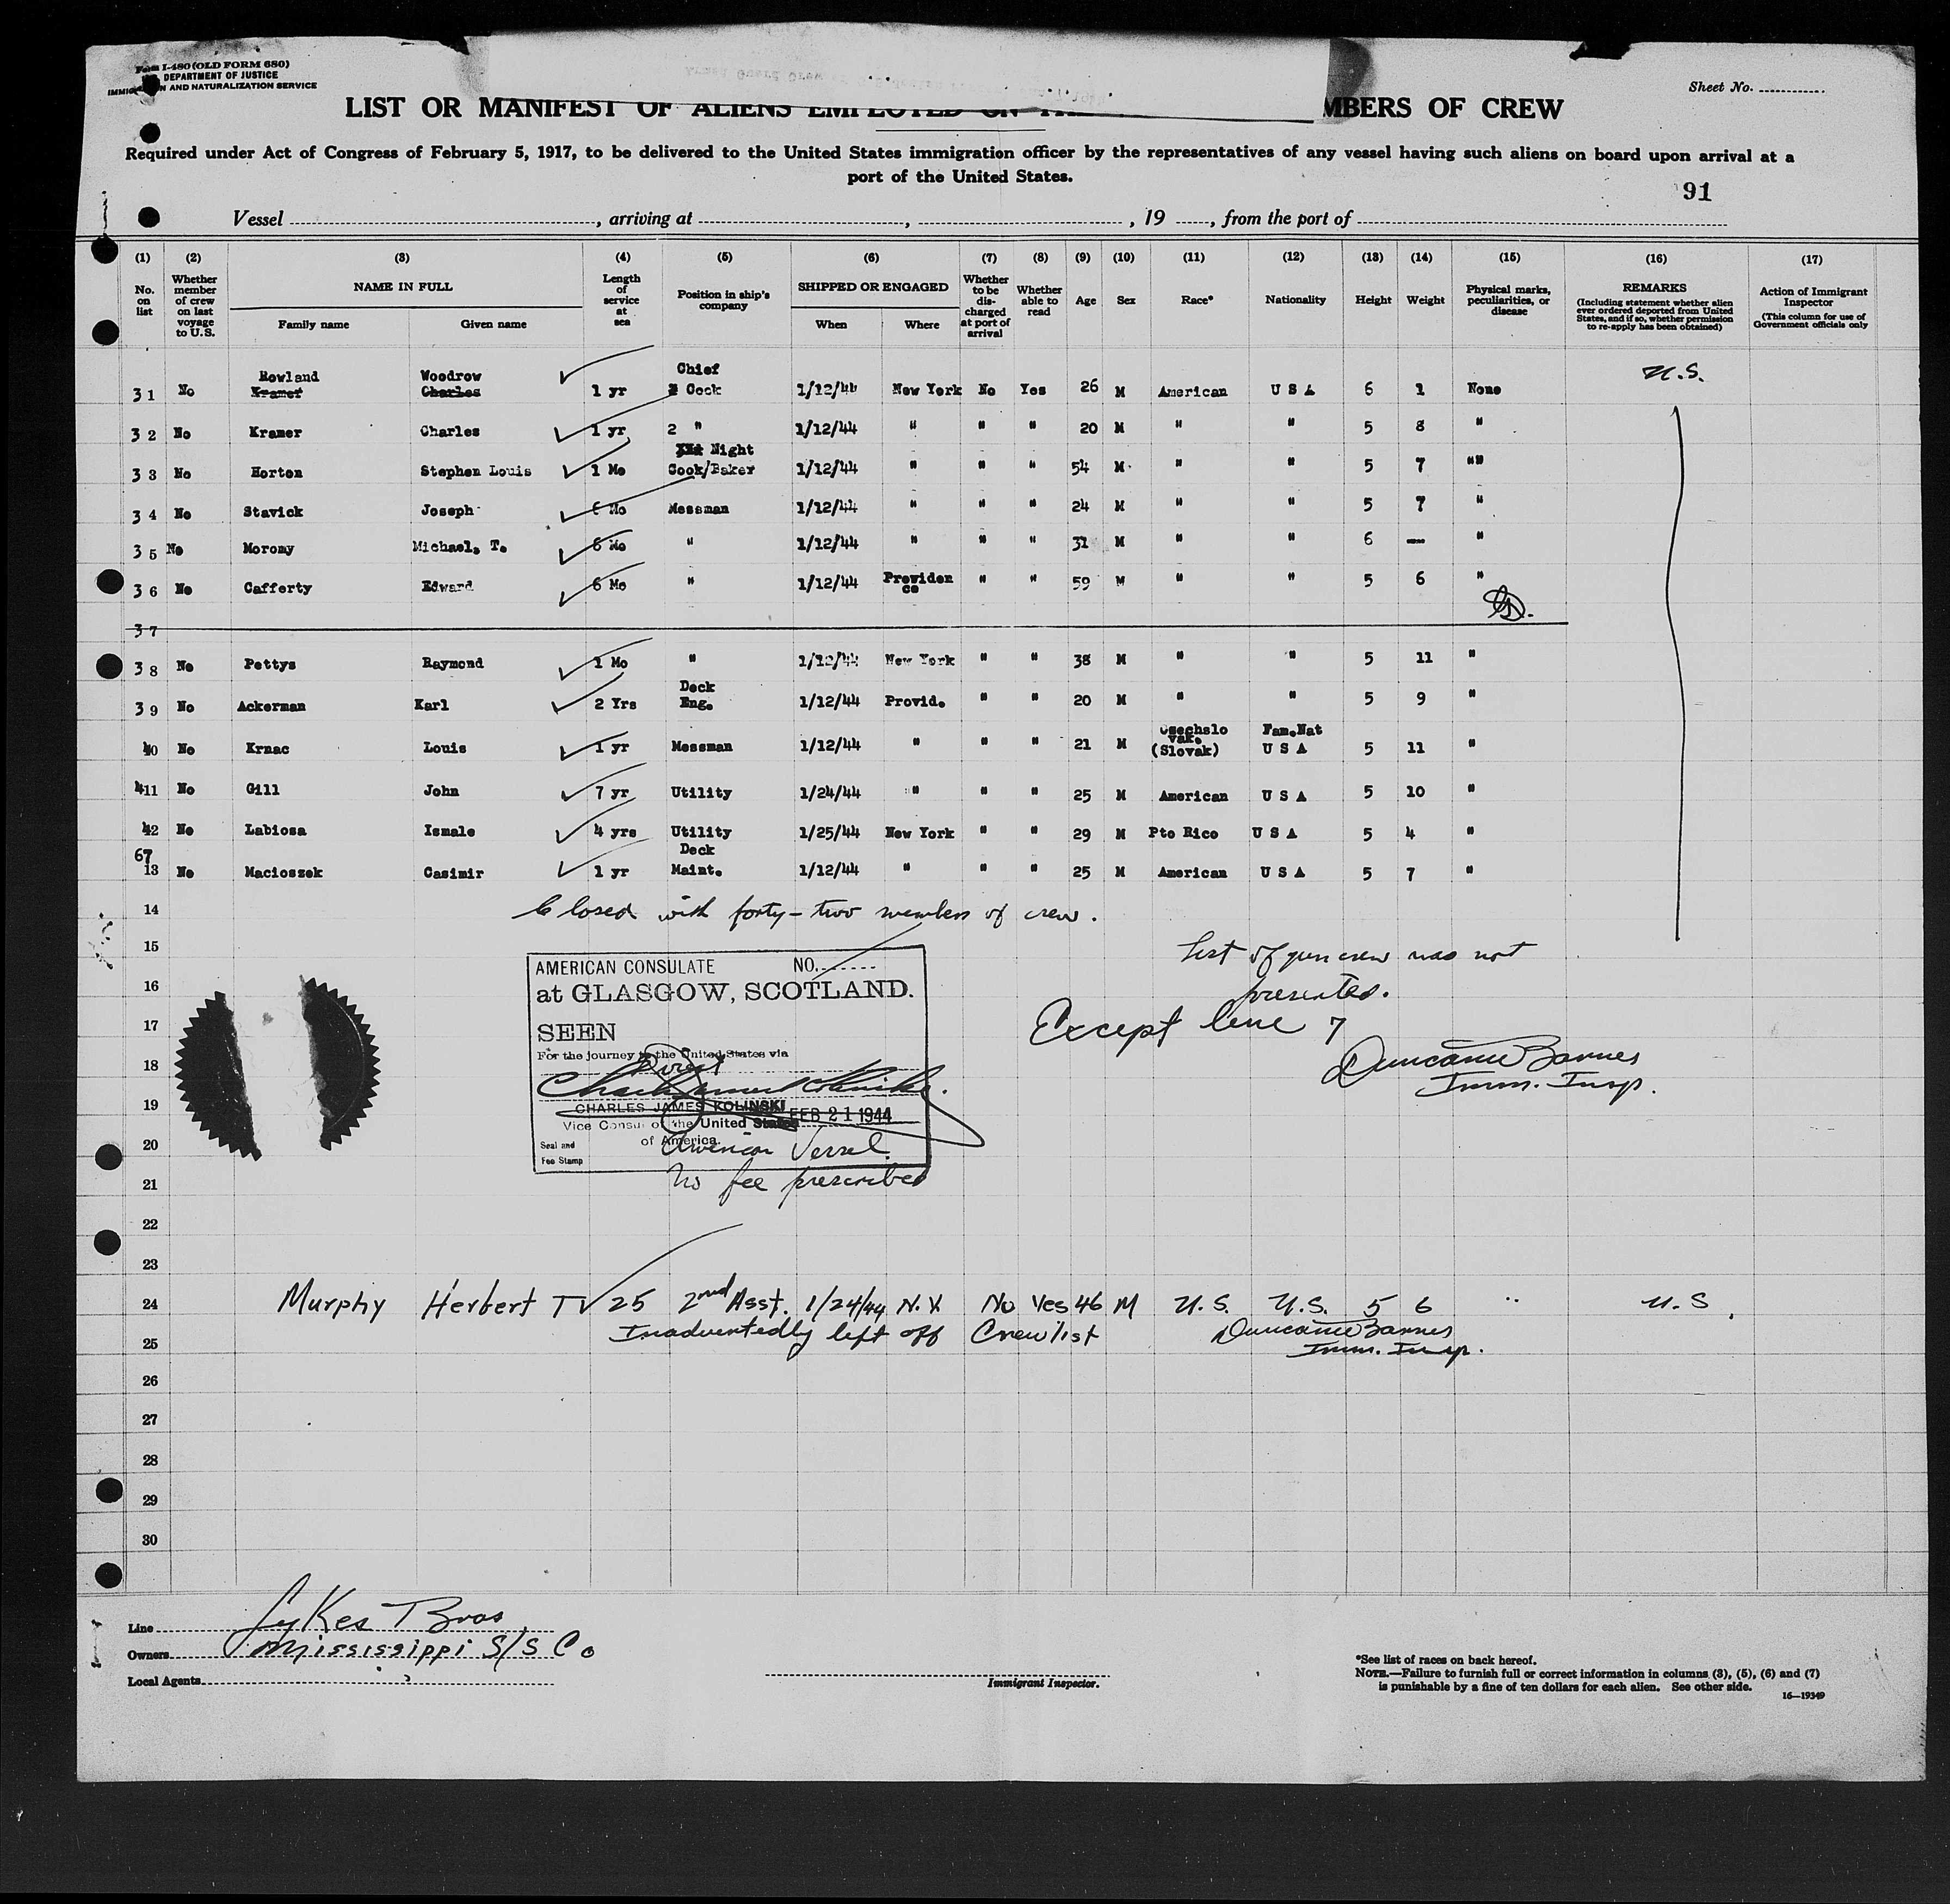 Form I-480 (OLD FORM 680)
DEPARTMENT OF JUSTICE
IMMIGRATION AND NATURALIZATION SERVICE
Sheet No.
LIST OR MANIFEST OF ALIENS EMPLOYED ON MBERS OF CREW
Required under Act of Congress of February 5, 1917, to be delivered to the United States immigration officer by the representatives of any vessel having such aliens on board upon arrival at a
port of the United States.
91
Vessel , arriving at , , 19 , from the port of
(1) (2) (3) (4) (5) (6) (7) (8) (9) (10) (11) (12) (13) (14) (15) (16) (17)
No. on list
Whether member of crew on last voyage to U.S.
NAME IN FULL
Family name Given name
Length of service at sea
Position in ship's company
SHIPPED OR ENGAGED
When Where
Whether to be discharged at port of arrival
Whether able to read
Age
Sex
Race*
Nationality
Height
Weight
Physical marks, peculiarities, or disease
REMARKS
(Including statement whether alien ever ordered deported from United States, and if so, whether permission to re-apply has been obtained)
Action of Immigrant Inspector
(This column for use of Government officials only
Rowland Woodrow Chief U.S.
31 No Kramer Charles 1 yr Cook 1/12/44 New York No Yes 26 M American U S A 6 1 None
32 No Kramer Charles 1 yr 2 " 1/12/44 " " " 20 M " " 5 8 "
Night
33 No Horton Stephen Louis 1 Mo Cook/Baker 1/12/44 " " " 54 M " " 5 7 ""
34 No Stavick Joseph 6 Mo Messman 1/12/44 " " " 24 M " " 5 7 "
35 No Moromy Michael, T. 6 Mo " 1/12/44 " " " 31 M " " 6 — "
36 No Cafferty Edward 6 Mo " 1/12/44 Providence " " 59 M " " 5 6 "
37
38 No Pettys Raymond 1 Mo " 1/12/44 New York " " 38 M " " 5 11 "
Deck
39 No Ackerman Karl 2 Yrs Eng. 1/12/44 Provid. " " 20 M " " 5 9 "
Czechslo Fam.Nat
vak.
40 No Krnac Louis 1 yr Messman 1/12/44 " " " 21 M (Slovak) U S A 5 11 "
411 No Gill John 7 yr Utility 1/24/44 " " " 25 M American U S A 5 10 "
42 No Labiosa Ismale 4 yrs Utility 1/25/44 New York " " 29 M Pto Rico U S A 5 4 "
67 Deck
13 No Macioszek Casimir 1 yr Maint. 1/12/44 " " " 25 M American U S A 5 7 "
14 Closed with forty-two members of crew.
15 List of gun crew was not
presented.
AMERICAN CONSULATE NO.
16 at GLASGOW, SCOTLAND.
17 SEEN
Except line 7
For the journey to the United States via
18 Direct
Duncan Barnes
Imm. Insp.
19 CHARLES JAMES KOLINSKI FEB 21 1944
Vice Consul of the United States
20 of America.
Seal and
Fee Stamp
American Vessel.
21 No fee prescribed
22
23
24 Murphy Herbert T 25 2nd Asst. 1/24/44 N.Y. No Yes 46 M U.S. U.S. 5 6 " U.S.
Inadvertedly left off Crew list Duncan Barnes
25 Imm. Insp.
26
27
28
29
30
Line Lykes Bros
Owners Mississippi S/S Co
Local Agents
Immigrant Inspector.
*See list of races on back hereof.
NOTE.—Failure to furnish full or correct information in columns (3), (5), (6) and (7)
is punishable by a fine of ten dollars for each alien. See other side.
16—19349